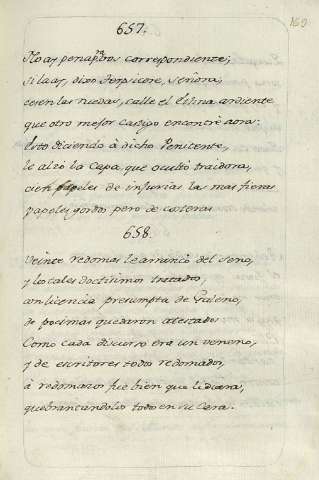 657.
160
No ay pena para vos correspondiente;
si la ay, dixo Terpsicore, señora;
cesen las ruedas, calle el Etna ardiente
que otro mejor castigo encontrè aora:
Esto diciendo à dicho Penitente,
le alzò la Capa, que ocultò traidora,
cien papeles de injurias las mas fieras
papeles gordos pero de
658.
Veinte redomas le arrancò del seno,
y los tales doctisimos tratados,
con licencia presumpta de Galeno,
de pocimas quedaron atestados
Como cada discurso era un veneno,
y de escritores todos redomados,
à redomazos fue bien que lidiara,
quebrandolos todo en su Cara.